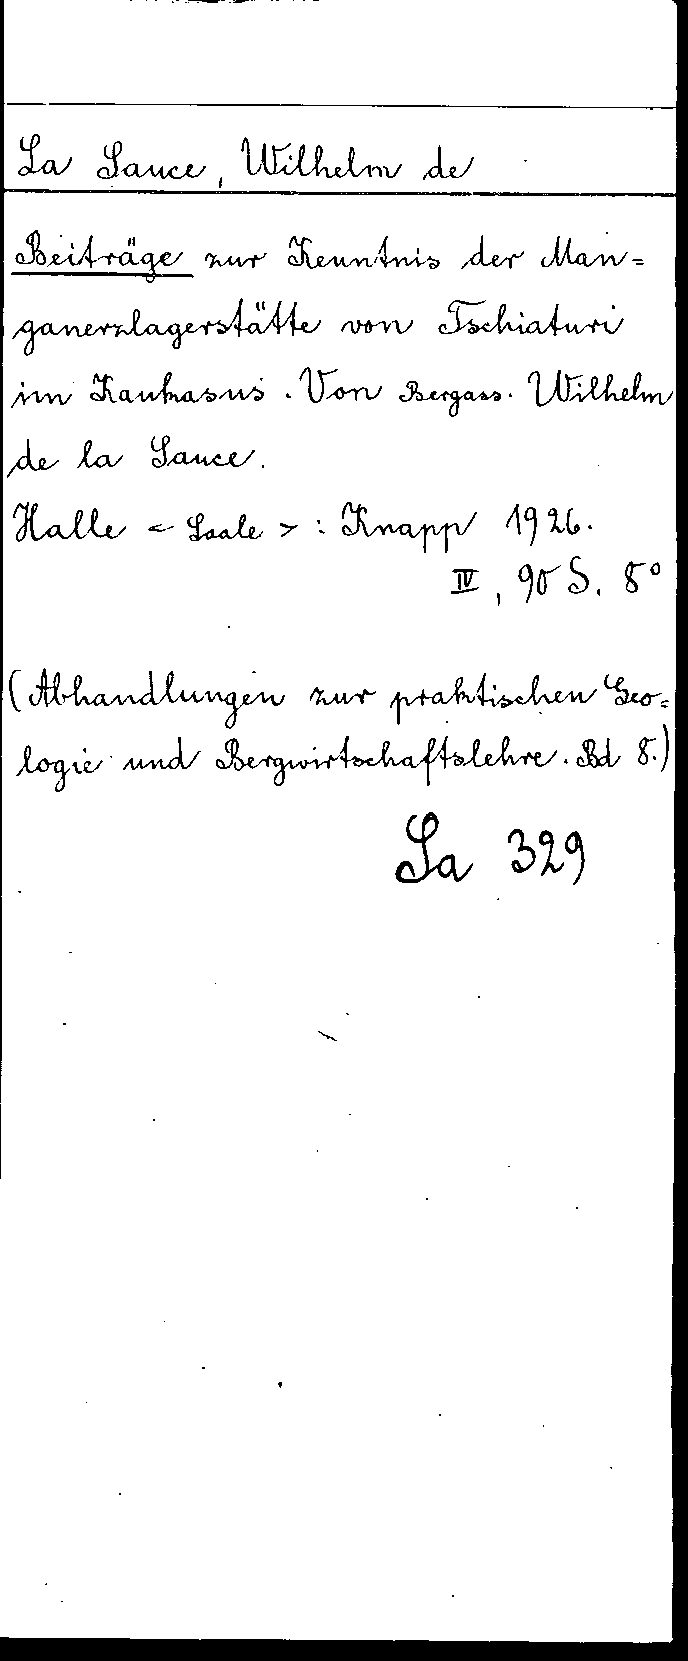 La Sauce, Wilhelm de
Beiträge zur Kenntnis der Man=
ganerzlagerstätte von Tschiaturi
im Kaukasus. Von Bergass. Wilhelm
de la Sauce.
Halle < Saale > : Knapp 1926.
IV, 90 S. 8°
(Abhandlungen zur praktischen Geo=
logie und Bergwirtschaftslehre. Bd 8.)
Sa 329